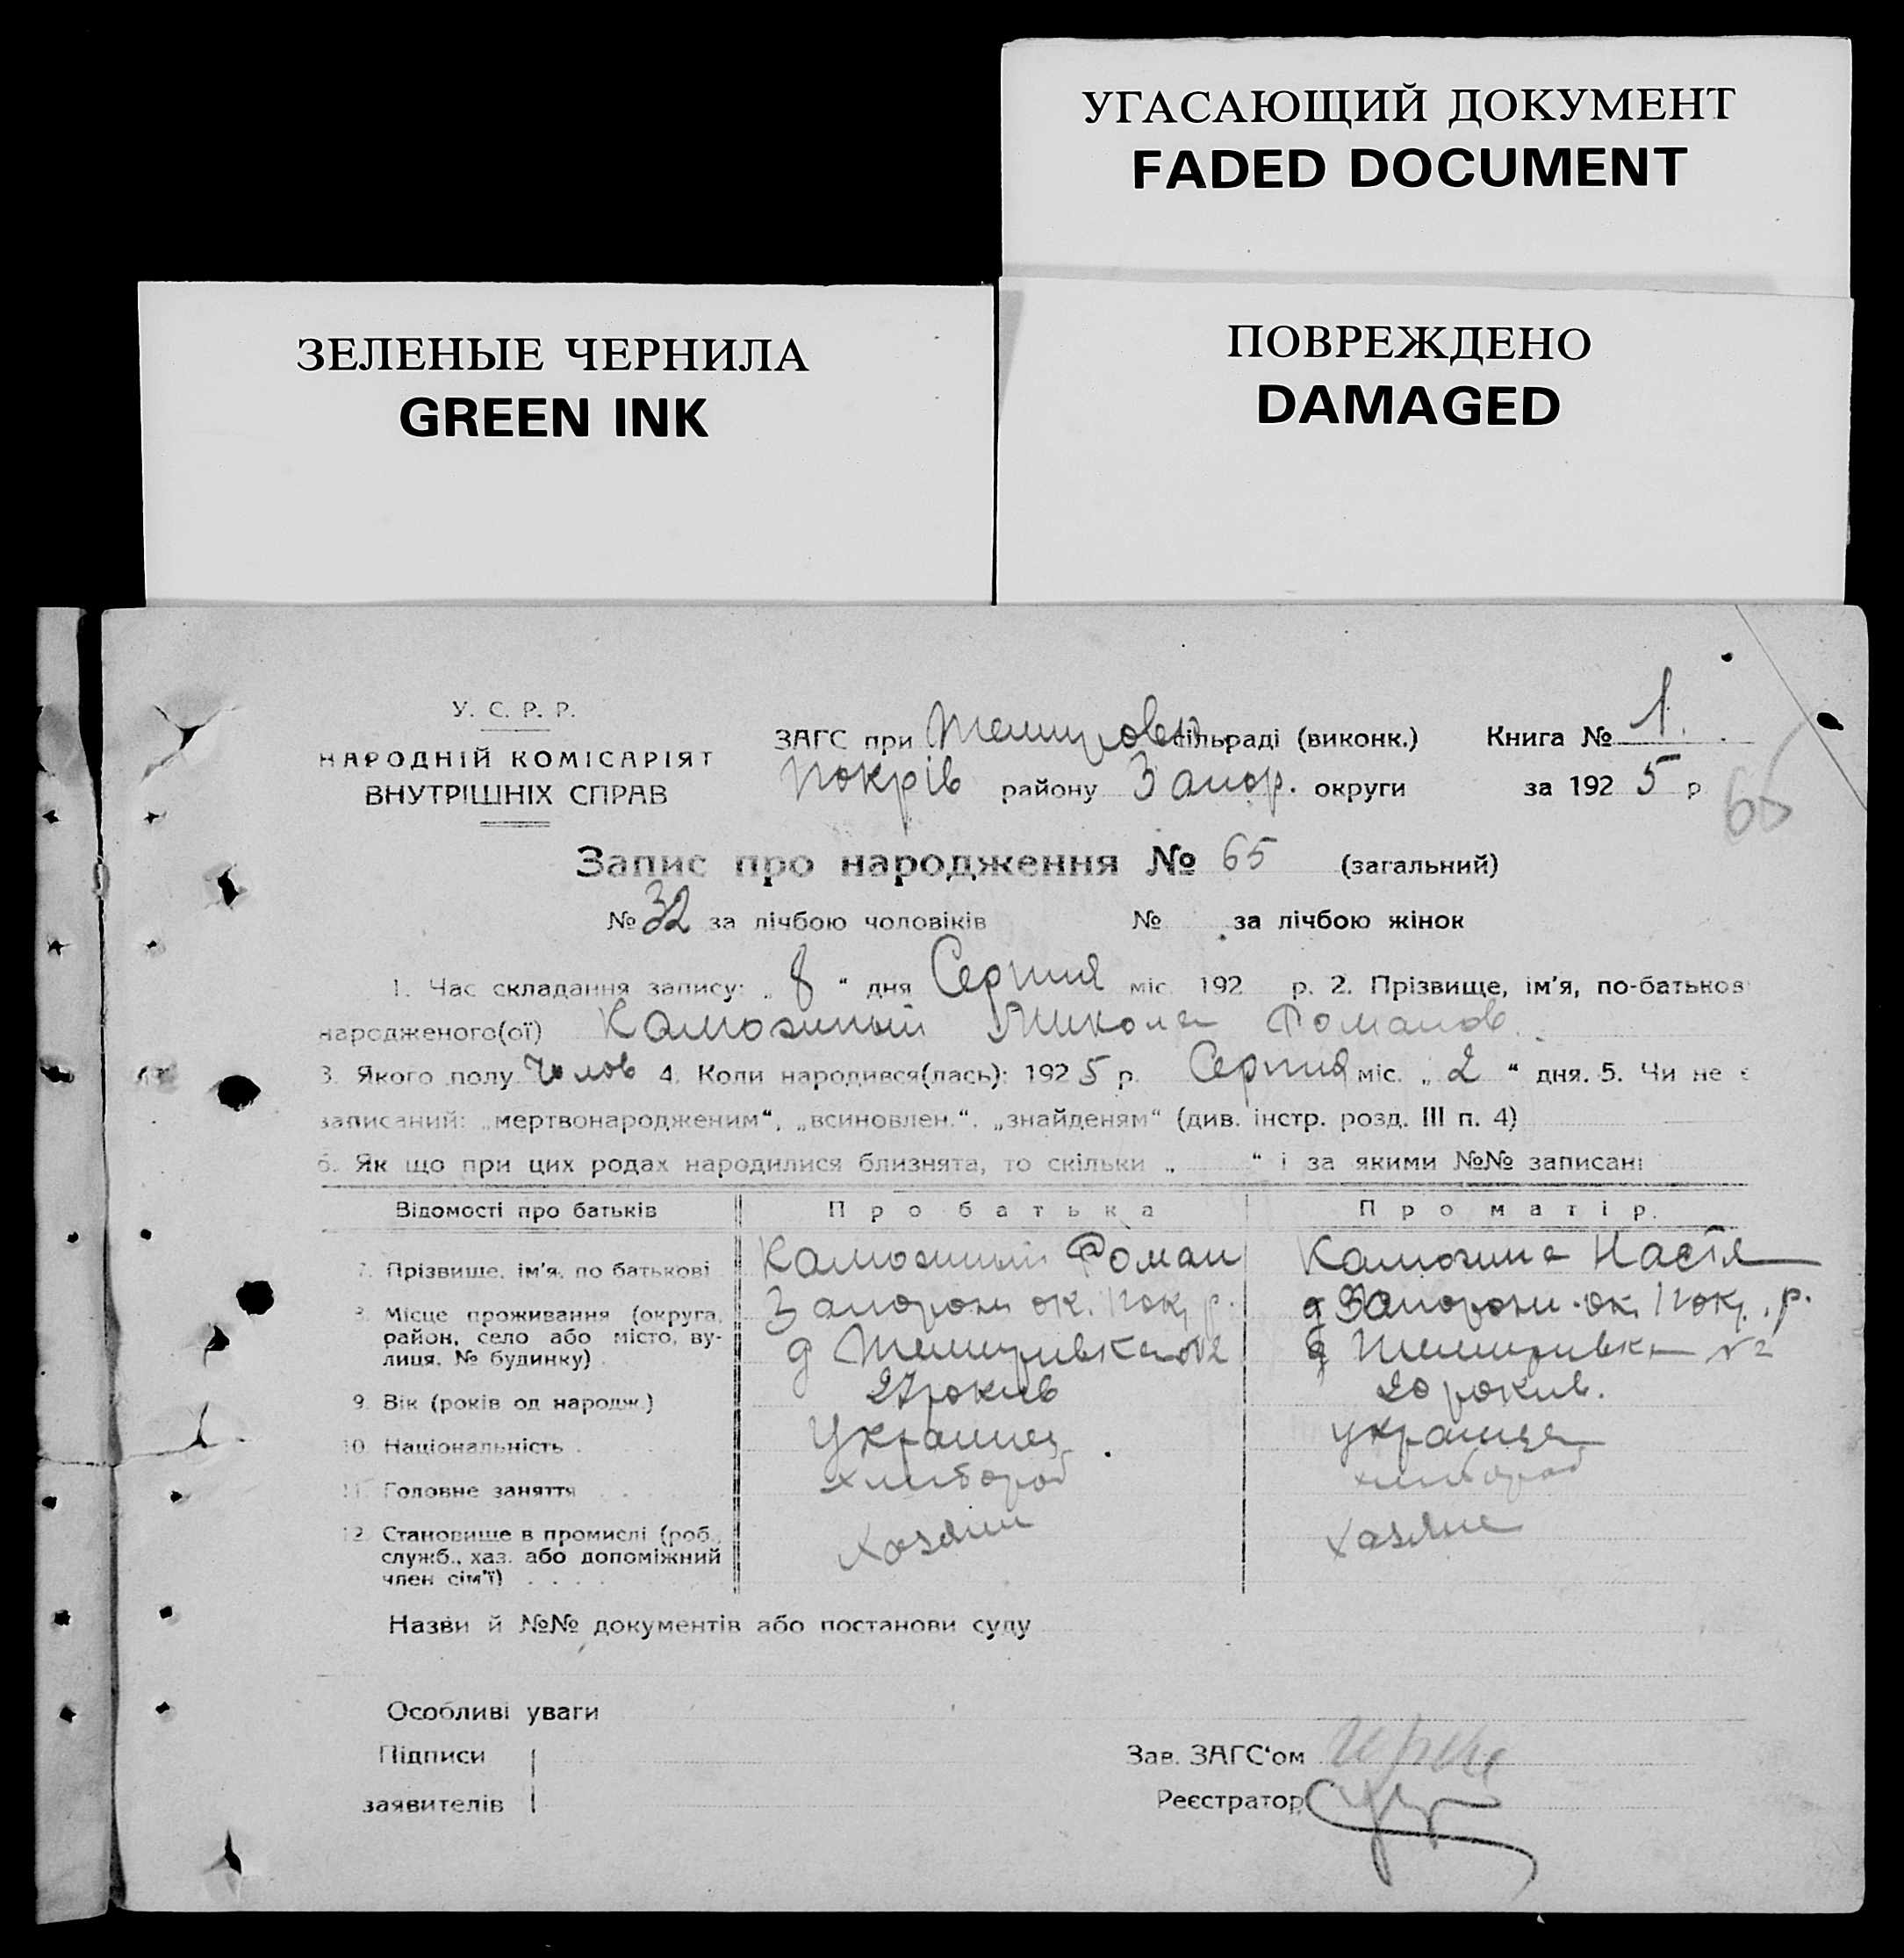 УГАСАЮЩИЙ ДОКУМЕНТ
FADED DOCUMENT
ЗЕЛЕНЫЕ ЧЕРНИЛА
GREEN INK
ПОВРЕЖДЕНО
DAMAGED
У. С. Р. Р.
НАРОДНІЙ КОМІСАРІЯТ
ВНУТРІШНІХ СПРАВ
ЗАГС при сільраді (виконк.) Книга № 1.
Покрів району Запор. округи за 1925 р
65
Запис про народження № 65 (загальний)
№ 32 за лічбою чоловіків № за лічбою жінок
1. Час складання запису: „ 8 “ дня Серпня міс. 192 р. 2. Прізвище, ім’я, по-батьков
народженого(ої) Микола Романов.
3. Якого полу Чолов 4. Коли народився(лась): 1925 р. Серпня міс. „ 2 “ дня. 5. Чи не є
записаний: „мертвонародженим“, „всиновлен.“, „знайденям“ (див. інстр. розд. III п. 4)
6. Як що при цих родах народилися близнята, то скільки „ “ і за якими №№ записані
Відомості про батьків Про батька Про матір.
7. Прізвище, ім’я, по батькові Роман Настя
8. Місце проживання (округа, Запорож ок. Пок. р. Запорож. ок. Пок. р.
район, село або місто, ву-
лиця, № будинку)
9. Вік (років од народж.) 27 рокив 20 рокив.
10. Національність Украинец украинка
11. Головне заняття хлибороб хлибороб
12. Становище в промислі (роб., Хозяин Хазяйка
служб., хаз. або допоміжний
член сім’ї)
Назви й №№ документів або постанови суду
Особливі уваги
Підписи
Зав. ЗАГС‘ом
заявителів
Реєстратор